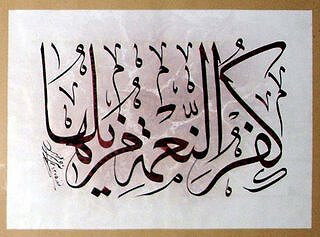 كفر النعمة مزيلها